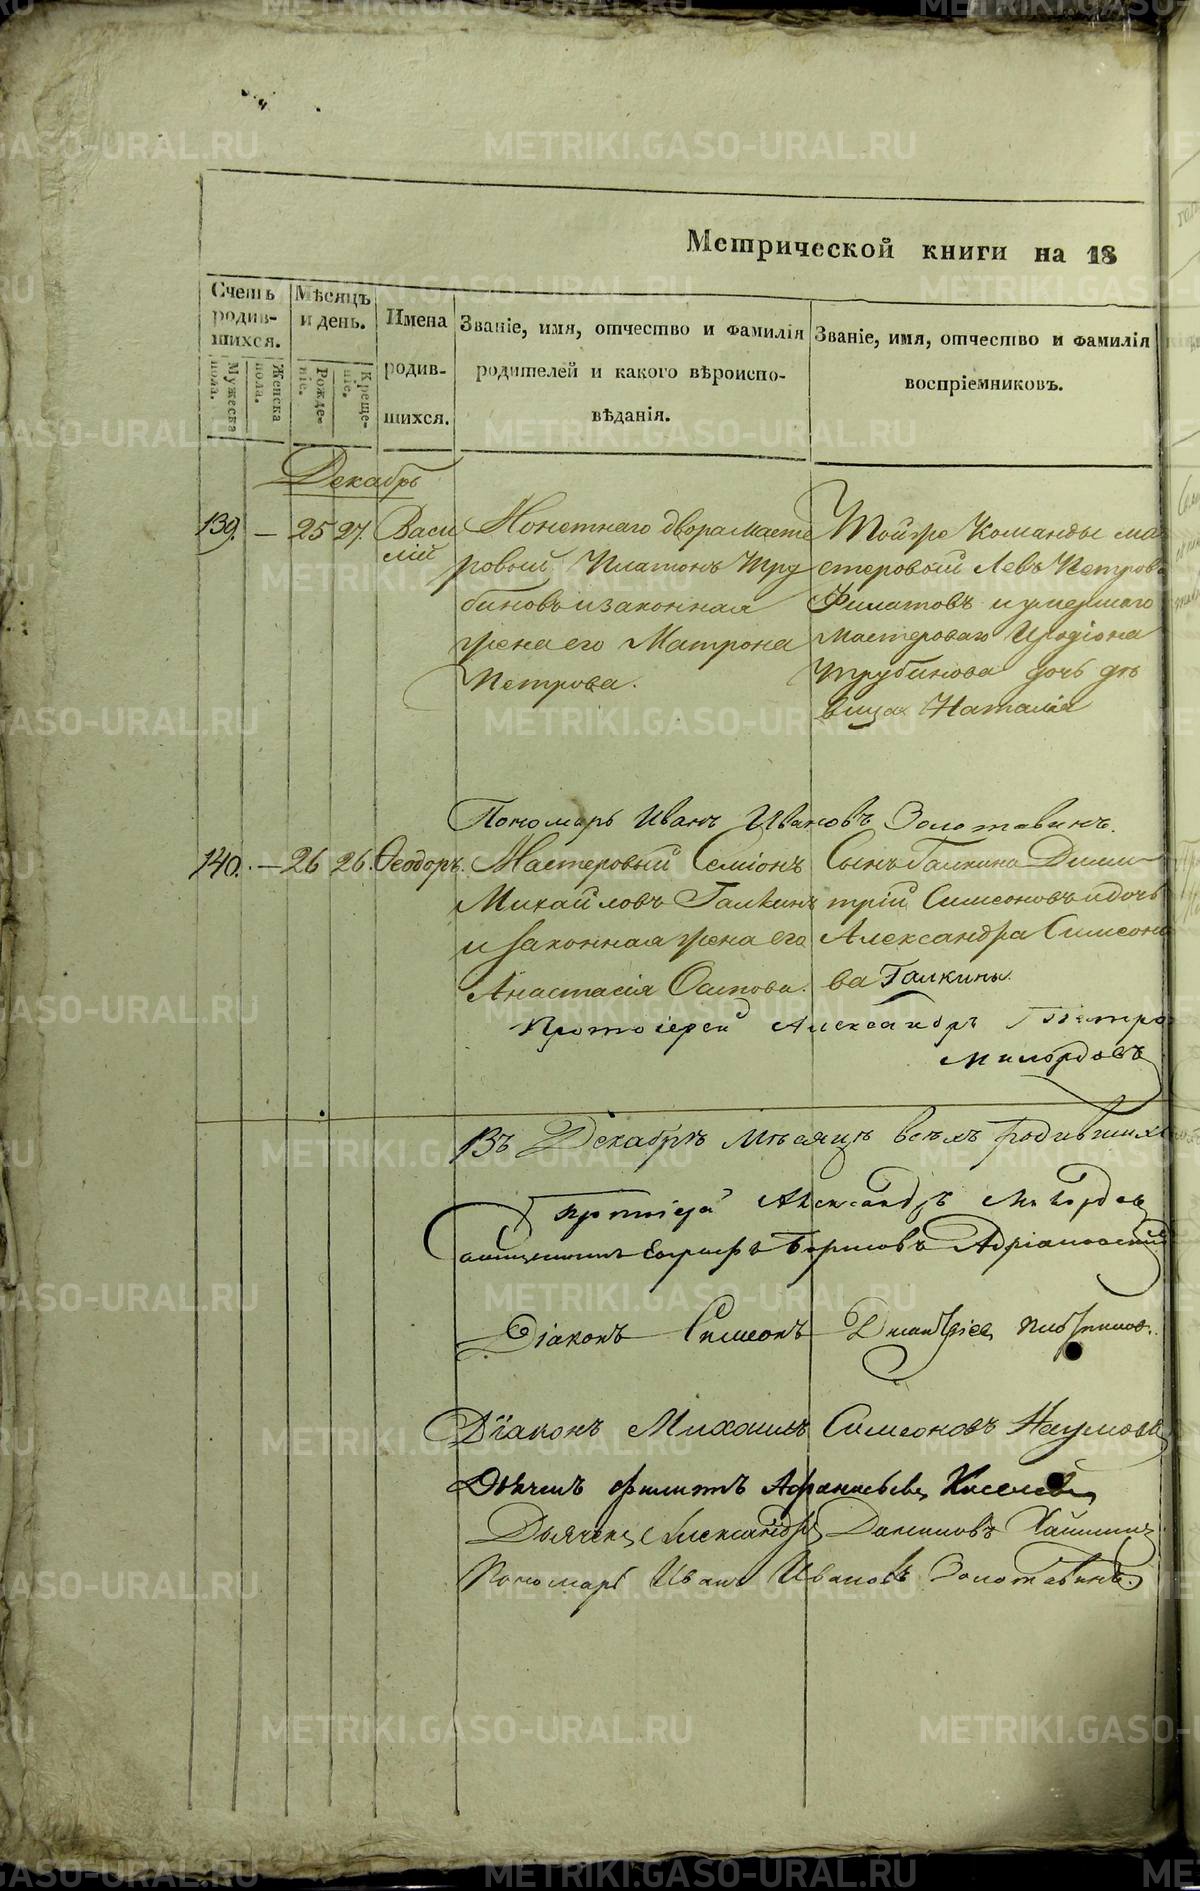 Метрической книги на 18
Счетъ родив-шихся.
Мужеска пола.
Женска пола.
Мѣсяцъ и день.
Рожде-ніе.
Креще-ніе.
Имена родив-шихся.
Званіе, имя, отчество и фамилія
родителей и какого вѣроиспо-
вѣданія.
Званіе, имя, отчество и фамилія
воспріемниковъ.
Декабрь
139. — 25 27. Васи
лій
Монетнаго двора масте
ровой Платонъ Тру
биновъ и законная
жена его Матрона
Петрова.
Той же Команды ма
стеровой Левъ Петровъ
Филатовъ и умершаго
мастероваго Иродіона
Трубинова дочь дѣ
вица Наталія
Пономарь Иванъ Ивановъ Золотавинъ.
140. — 26 26. Ѳеодоръ.
Мастеровый Семіонъ
Михайловъ Галкинъ
и законная жена его
Анастасія Осипова.
Сынъ Галкина Дими
трій Симеоновъ и дочь
Александра Симеоно
ва Галкины.
Протоіерей Александръ Петро
Милордовъ
Въ Декабрѣ мѣсяцѣ всѣхъ родившихс
Протоіерей Александръ Милордов
Священникъ Евграфъ Борисовъ Адріановскій
Діаконъ Симеонъ
Діаконъ Михаилъ Симеоновъ Наумовъ
Дьячекъ Филиппъ Афанасьевъ Киселевъ
Дьячекъ Александръ
Пономарь Иванъ Ивановъ Золотавинъ.
METRIKI.GASO-URAL.RU